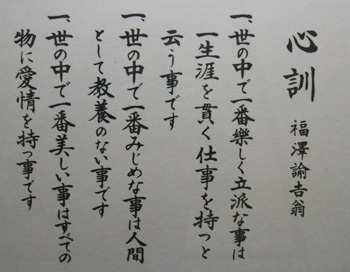 心訓
福澤諭吉翁
一、世の中で一番楽しく立派な事は
一生涯を貫く仕事を持つと
云う事です
一、世の中で一番みじめな事は人間
として教養のない事です
一、世の中で一番美しい事はすべての
物に愛情を持つ事です